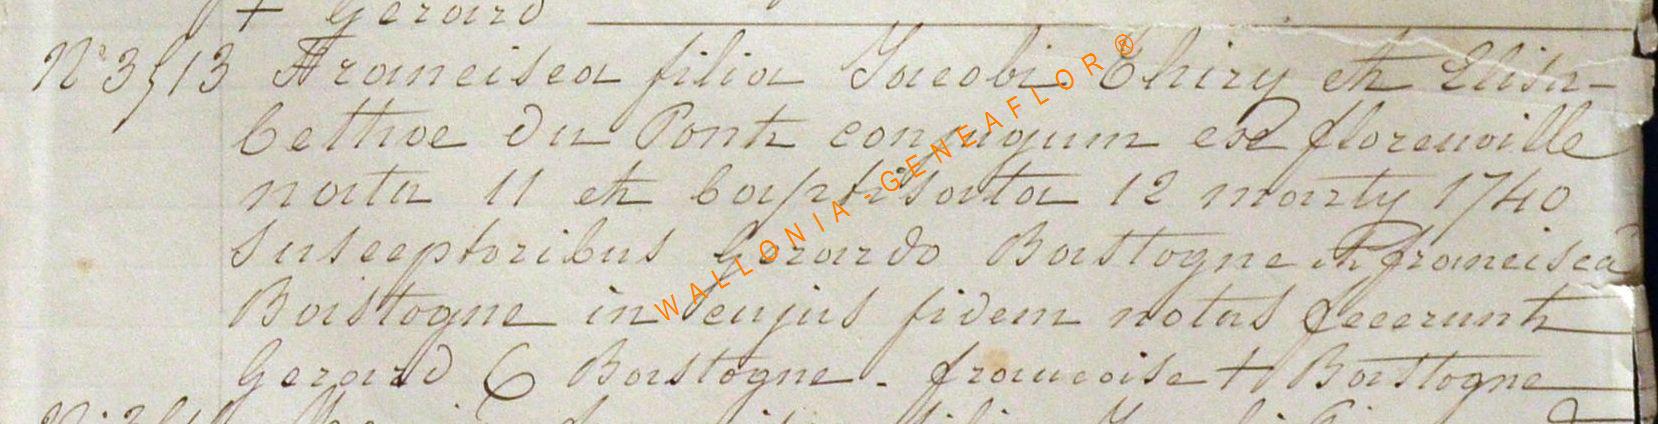 + Gerard
N° 3513 Francisca filia Jacobi Thiry et Elisa-
bethoe du Pont conjugum ex florenville
nata 11 et baptisata 12 marty 1740
susceptoribus Gerardo Bastogne et francisca
Bastogne in cujus fidem notas fecerunt
Gerard Bastogne - francoise + Bastogne
WALLONIA-GENEAFLOR®